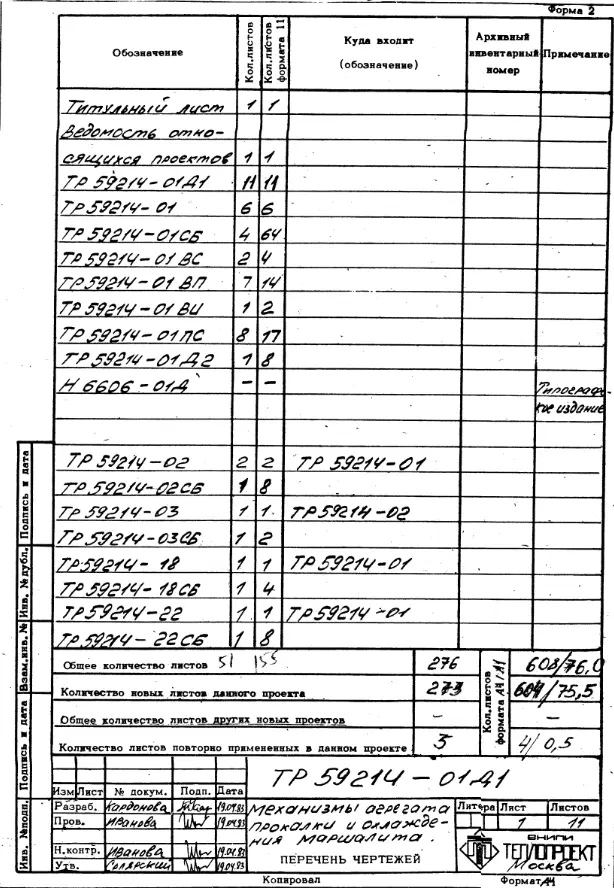 Форма 2
Обозначение Кол.листов Кол.листов формата 11 Куда входит (обозначение) Архивный инвентарный номер Примечание
Титульный лист 1 1
Ведомость отно-
сящихся проектов 1 1
ТР 59214-01Д1 11 11
ТР 59214-01 6 6
ТР 59214-01СБ 4 64
ТР 59214-01 ВС 2 4
ТР 59214-01 ВП 7 14
ТР 59214-01 ВИ 1 2
ТР 59214-01ПС 8 17
ТР 59214-01Д2 1 8
Н 6606-01Д — — Типограф-
кое издание
ТР 59214-02 2 2 ТР 59214-01
ТР.59214-02СБ 1 8
ТР 59214-03 1 1 ТР59214-02
ТР 59214-03СБ 1 2
ТР59214-18 1 1 ТР59214-01
ТР 59214-18СБ 1 4
ТР 59214-22 1 1 ТР59214-01
ТР.59214-22СБ 1 8
Общее количество листов 51 155 276 Кол.листов формата А4/А1 608/76,0
Количество новых листов данного проекта 273 604/75,5
Общее количество листов других новых проектов — —
Количество листов повторно примененных в данном проекте 3 4/0,5
Инв. №подл. Подпись и дата Взам.инв. № Инв. №дубл. Подпись и дата
ТР 59214-01Д1
Изм Лист № докум. Подп. Дата
Разраб. Кардонова 19.04.83
Пров. Иванова 19.04.83
Н.контр. Иванова 19.04.83
Утв. 19.04.83
Механизмы агрегата
прокалки и охлажде-
ния маршалита.
ПЕРЕЧЕНЬ ЧЕРТЕЖЕЙ
Литера Лист Листов
1 11
ВНИПИ
ТЕПЛОПРОЕКТ
Москва
Копировал Формат А4